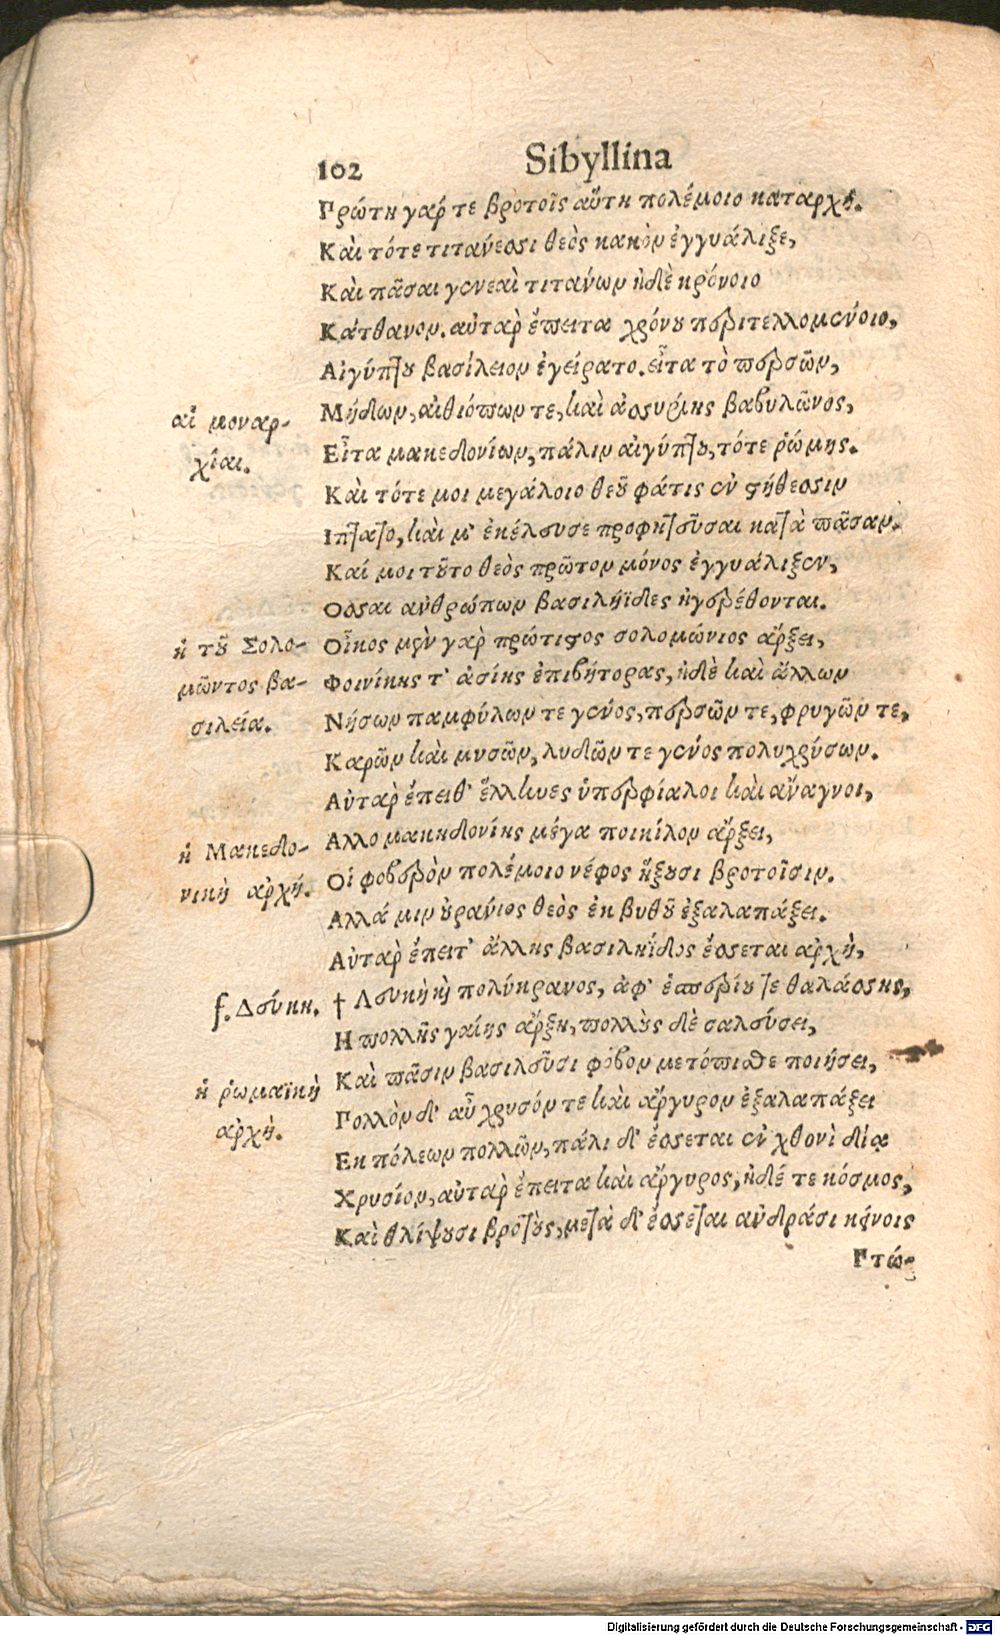 102
Sibyllina
Πρώτη γάρ τε βροτοῖς αὕτη πολέμοιο καταρχή.
Καὶ τότε τιτανέσσι θεὸς κακὸν ἐγγυάλιξε,
Καὶ πᾶσαι γενεαὶ τιτάνων ἠδὲ κρόνοιο
Κάτθανον. αὐτὰρ ἔπειτα χρόνου περιτελλομένοιο,
Αἰγύπτου βασίλειον ἐγείρατο. εἶτα τὸ περσῶν,
αἱ μοναρ-
χίαι.
Μήδων, αἰθιόπων τε, καὶ ἀσσυρίης βαβυλῶνος,
Εἶτα μακεδονίων, πάλιν αἰγύπτου, τότε ῥώμης.
Καὶ τότε μοι μεγάλοιο θεοῦ φάτις ἐν στήθεσσιν
Ιπτατο, καὶ μ' ἐκέλευσε προφητεῦσαι κατὰ πᾶσαν.
Καί μοι τοῦτο θεὸς πρῶτον μόνος ἐγγυάλιξεν,
Οσσαι ἀνθρώπων βασιληΐδες ἠγερέθονται.
ἡ τοῦ Σολο-
μῶντος βα-
σιλεία.
Οἶκος μὲν γὰρ πρώτιστος σολομώνιος ἄρξει,
Φοινίκης τ' ἀσίης ἐπιβήτορας, ἠδὲ καὶ ἄλλων
Νήσων παμφύλων τε γένος, περσῶν τε, φρυγῶν τε,
Καρῶν καὶ μυσῶν, λυδῶν τε γένος πολυχρύσων.
Αὐτὰρ ἔπειθ' ἕλληνες ὑπερφίαλοι καὶ ἄναγνοι,
ἡ Μακεδο-
νικὴ ἀρχή.
Αλλο μακηδονίης μέγα ποικίλον ἄρξει,
Οἱ φοβερὸν πολέμοιο νέφος ἥξουσι βροτοῖσιν.
Αλλά μιν οὐράνιος θεὸς ἐκ βυθοῦ ἐξαλαπάξει.
Αὐτὰρ ἔπειτ' ἄλλης βασιληΐδος ἔσσεται ἀρχὴ,
f. Λεύκη.
† Λευκὴ καὶ πολύκρανος, ἀφ' ἑσπερίου τε θαλάσσης,
Η πολλῆς γαίης ἄρξῃ, πολλοὺς δὲ σαλεύσει,
ἡ ῥωμαϊκὴ
ἀρχή.
Καὶ πᾶσιν βασιλεῦσι φόβον μετόπισθε ποιήσει,
Πολλὸν δ' αὖ χρυσόν τε καὶ ἄργυρον ἐξαλαπάξει
Εκ πόλεων πολλῶν, πάλι δ' ἔσσεται ἐν χθονὶ δίᾳ
Χρυσίον, αὐτὰρ ἔπειτα καὶ ἄργυρος, ἠδέ τε κόσμος,
Καὶ θλίψουσι βροτοὺς, μετὰ δ' ἔσσεται ἀνδράσι κείνοις
Πτώ-